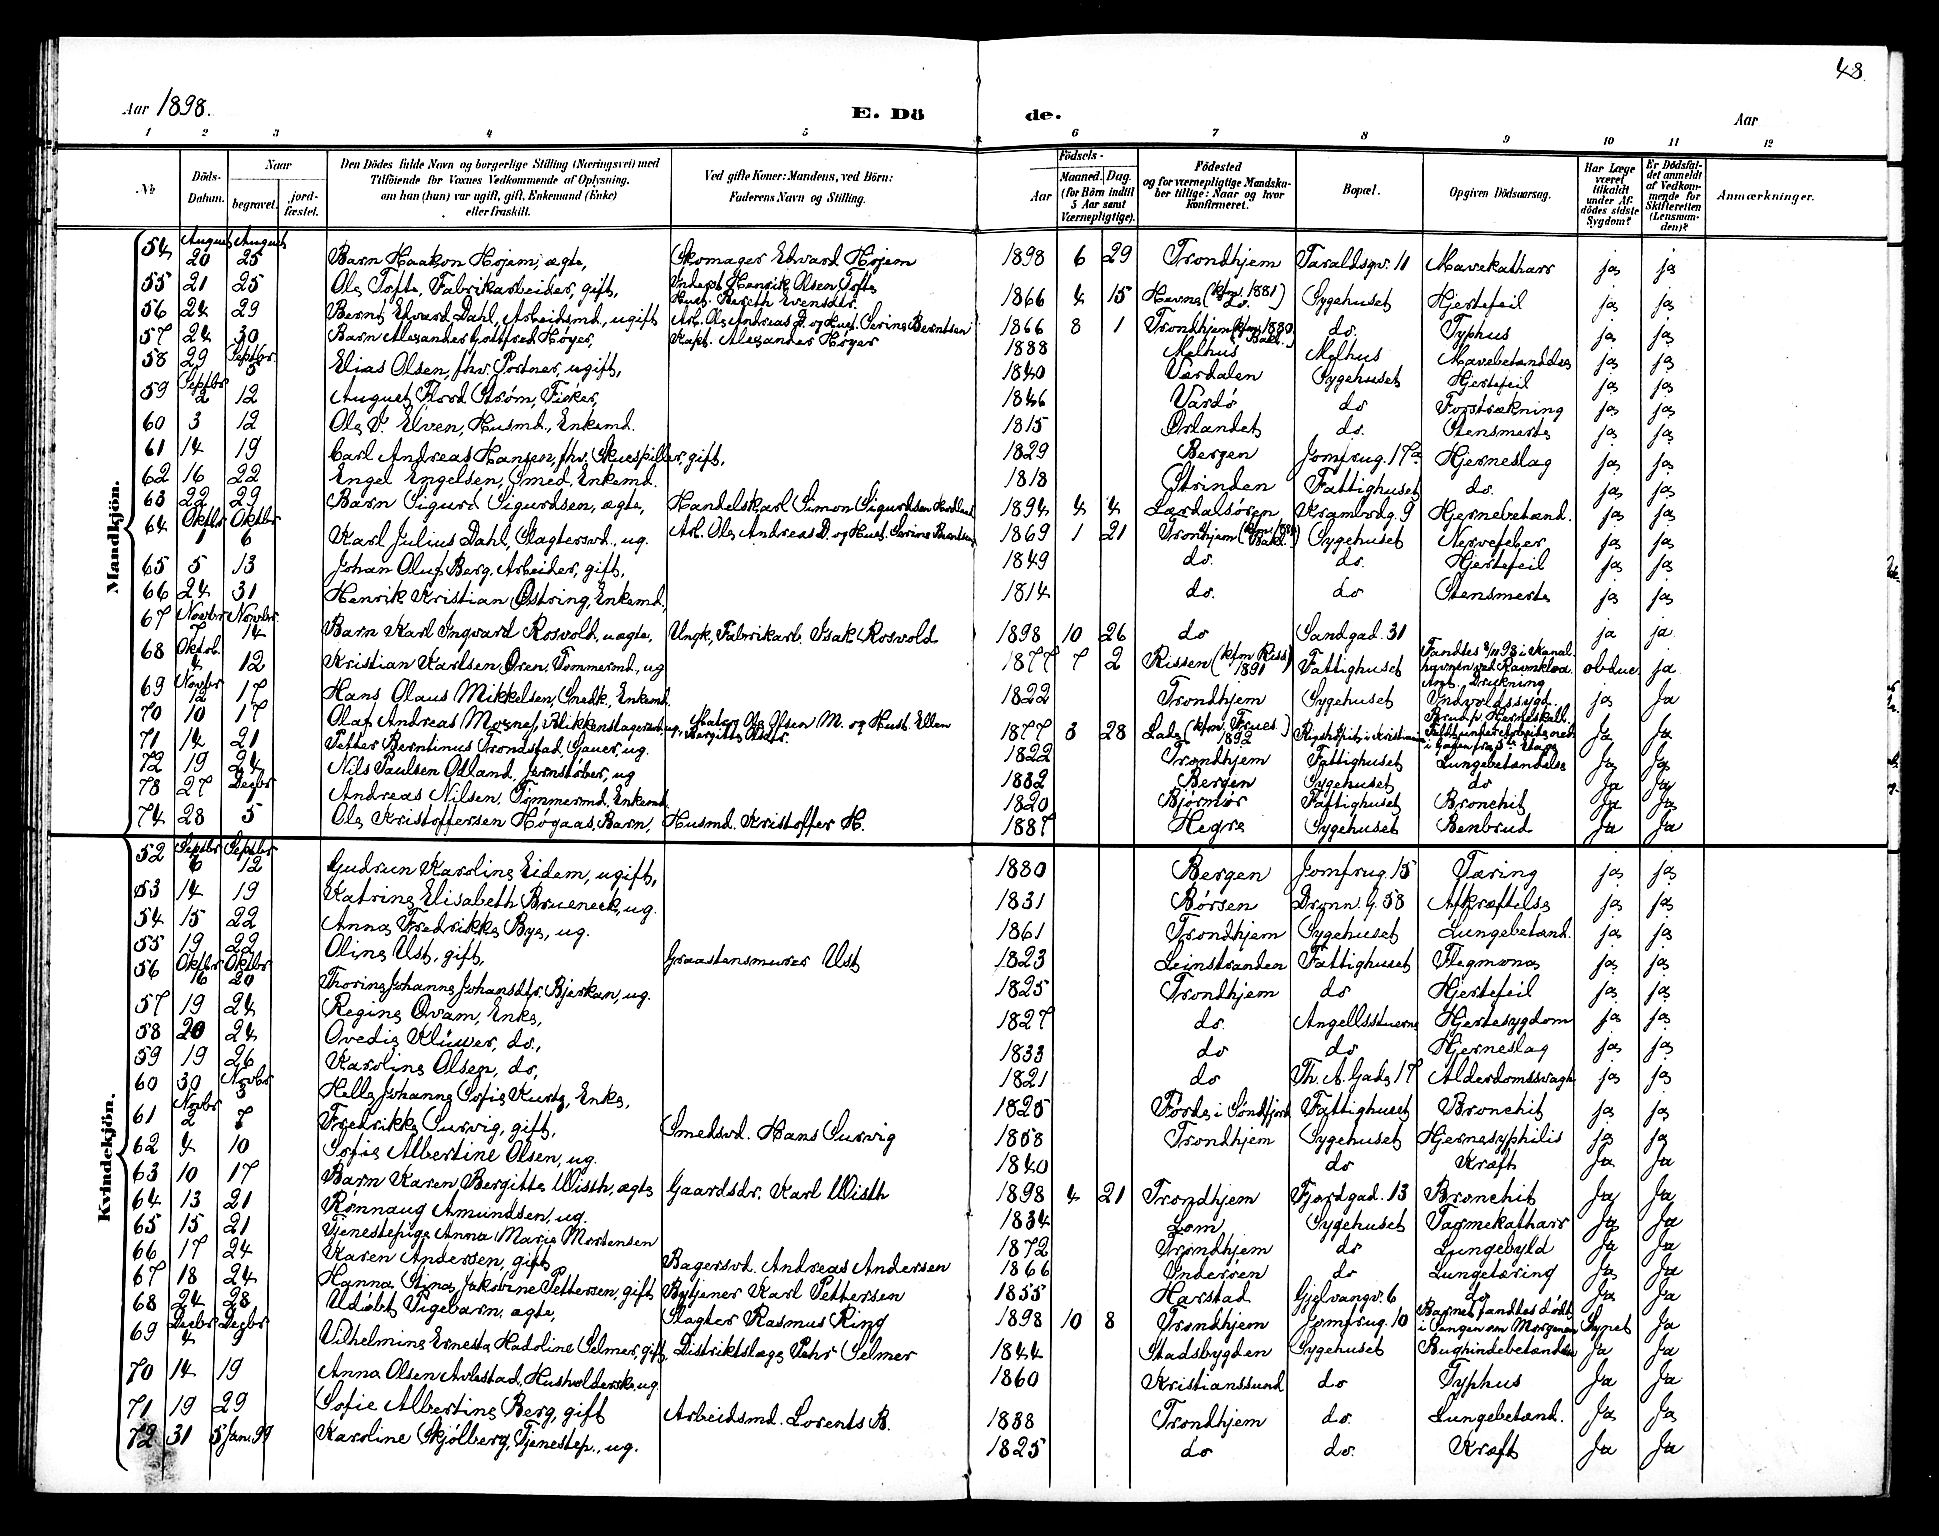 48
Aar 1898.
E. Dö de.
Aar
1 2 3 4 5 6 7 8 9 10 11 12
No
Döds-Datum.
Naar
begravet.
jord-fæstet.
Den Dödes fulde Navn og borgerlige Stilling (Næringsvei) med
Tilföiende for Voxnes Vedkommende af Oplysning.
om han (hun) var ugift, gift, Enkemand (Enke)
eller fraskilt.
Ved gifte Koner: Mandens, ved Börn:
Faderens Navn og Stilling.
Födsels-
Aar
Maaned. Dag.
(for Börn indtil
5 Aar samt
Værnepligtige).
Födested
og for værnepligtige Mandska-
ber tillige: Naar og hvor
konfirmeret.
Bopæl.
Opgiven Dödsaarsag.
Har Læge
været
tilkaldt
under Af-
dödes sidste
Sygdom?
Er Dödsfal-
det anmeldt
af Vedkom-
mende for
Skifteretten
(Lensman-
den)?
Anmærkninger.
Mandkjön.
54 August 20 August 25 Barn Haakon Hojem, ægte, Skomager Edvard Hojem 1898 6 29 Trondhjem Taraldsgv. 11 Mavekatharr ja ja
55 21 25 Ole Tofte, Fabrikarbeider, gift, Inderst Henrik Olsen Tofte Hust. Bereth Evensdtr. 1866 4 15 Hevne (kfm 1881 do.) Sygehuset Hjertefeil ja ja
56 24 29 Bernt Edvard Dahl, Arbeidsmd, ugift Arb. Ole Andreas D. og Hust. Serine Berntsen 1866 8 1 Trondhjem (kfm 1880 Bakl.) do. Typhus ja ja
57 24 30 Barn Alexander Gottfred Høyer, Kapt. Alexander Høyer 1888 Melhus Melhus Mavebetændelse ja ja
58 29 Septbr 5 Elias Olsen, fhv. Portner, ugift, 1840 Værdalen Sygehuset Hjertefeil ja ja
59 Septbr 2 12 August Thord Strøm, Fisker, 1846 Vardø do Forstrækning ja ja
60 3 12 Ole J. Elven, Husmd., Enkemd. 1815 Ørlandet do. Stensmerte ja ja
61 14 19 Carl Andreas Hansen, fhv. Skuespiller, gift, 1829 Bergen Jomfrug. 17a Hjerneslag ja ja
62 16 22 Engel Engelsen, Smed, Enkemd. 1818 Strinden Fattighuset do. ja ja
63 22 29 Barn Sigurd Sigurdsen, ægte, Handelskarl Simon Sigurdsen 1894 4 4 Lærdalsören Krambodg. 9 Hjernebetænd. ja ja
64 Oktbr 1 Oktbr 6 Karl Julius Dahl, Slagtersvd., ug. Arb. Ole Andreas D. og Hust. Serine Berntsen 1869 1 21 Trondhjem Sygehuset Nervefeber ja ja
65 5 13 Johan Oluf Berg, Arbeider, gift, 1849 do. do. Hjertefeil ja ja
66 24 31 Henrik Kristian Østring, Enkemd. 1814 do. do Stensmerte ja ja
67 Novbr 7 Novbr 14 Barn Karl Ingvard Rosvold, uægte, Ungk. Fabrikarb. Isak Rosvold 1898 10 26 do Sandgad. 31 ja ja
68 Oktob. 4 12 Kristian Karlsen Øren, Tømmermd, ug 1877 7 2 Rissen (kfm Riss 1891) Fattighuset Fandtes 4/11 98 i Kanal-havnen ved Ravnkloa. Ant. Drukning obduc. ja
69 Novbr 12 17 Hans Olaus Mikkelsen, Snedk., Enkemd. 1822 Trondhjem Sygehuset Indvoldssygd. ja Ja
70 10 17 Olaf Andreas Mosnes, Blikkenslagersvd. ug, Ole Olsen M. og Hust. Ellen Bergitte Olsdtr. 1877 3 28 (kfm 1892) Rigshospit. i Kristiania Ja Ja
71 14 21 Petter Berntinus Trondstad, Garver, ug. 1822 Trondhjem Fattighuset Lungebetændelse Ja Ja
72 19 24 Nils Paulsen Odland, Jernstøber, ug 1832 Bergen Sygehuset do Ja Ja
73 27 Decbr 1 Andreas Nilsen, Tømmermd, Enkemd. 1820 Bjørnør Fattighuset Bronchit Ja Ja
74 28 5 Ole Kristoffersen Høgaas, Barn, Husmd. Kristoffer H. 1887 Hegre Sygehuset Benbrud Ja Ja
Kvindekjön.
52 Septbr 6 Septbr 12 Gudrun Karoline Eidem, ugift, 1880 Bergen Jomfrug 15 Tæring ja ja
53 14 19 Katrine Elisabeth Brueneck, ug. 1831 Børsen Dronn. g. 58 Afkræftelse ja ja
54 15 22 Anna Fredrikke Bye, ug. 1861 Trondhjem Sygehuset Lungebetænd. ja ja
55 19 22 Oline Ust, gift, Graastensmurer Ust 1823 Leinstranden Fattighuset Flegmone ja ja
56 Oktbr 16 Oktbr 20 Thorine Johanne Johansdtr. Bjerkan, ug. 1825 Trondhjem do Hjertefeil ja ja
57 19 24 Regine Qvam, Enke, 1827 do. Angellsstuerne Hjertesygdom ja ja
58 20 24 Ovedie Klüwer, do., 1833 do do Hjerneslag ja ja
59 19 26 Karoline Olsen, do, 1821 do Th. A. Gade 17 Alderdomssvagh ja ja
60 30 Novbr 3 Helle Johanne Sofie Kurtz, Enke, 1825 Förde i Söndfjord Fattighuset Bronchit ja ja
61 Novbr 2 7 Fredrikke Survig, gift, Smedsvd. Hans Survig 1858 Trondhjem Sygehuset Hjernesyphilis ja ja
62 4 10 Sofie Albertine Olsen, ug. 1840 do Kræft Ja Ja
63 10 17 Barn Karen Bergitte Wisth, ægte Gaardsdr. Karl Wisth 1898 4 21 Trondhjem Fjordgad. 13 Bronchit Ja Ja
64 13 21 Rønnaug Amundsen, ug. 1834 Lom Sygehuset Tarmekatharr Ja Ja
65 15 21 Tjenestepige Anna Marie Mortensen 1872 Trondhjem do Lungebyld Ja Ja
66 17 24 Karen Andersen, gift Bagersvd. Andreas Andersen 1866 Inderøen do Lungetæring Ja Ja
67 18 24 Hanna Stina Jakobine Pettersen, gift Bytjener Karl Pettersen 1855 Harstad Gjelvangv. 6 do Ja Ja
68 24 28 Udøbt Pigebarn, ægte, Slagter Rasmus Ring 1898 10 8 Trondhjem Jomfrug. 10 Barnet fandtes dödt i Sengen om Morgenen Synet Ja
69 Decbr 4 Decbr 9 Vilhelmine Ernesta Hadoline Selmer, gift, Distriktslæge Pehr Selmer 1844 Stadsbygden Sygehuset Bughindebetændelse Ja Ja
70 14 19 Anna Olsen Avlestad, Husholderske, ug. 1860 Kristianssund do Typhus Ja Ja
71 19 29 Sofie Albertine Berg, gift Arbeidsmd. Lorents B. 1838 Trondhjem do. Lungebetænd. Ja Ja
72 31 5 Jan. 99 Karoline Skjölberg, Tjenestep., ug. 1825 do do. Kræft Ja Ja